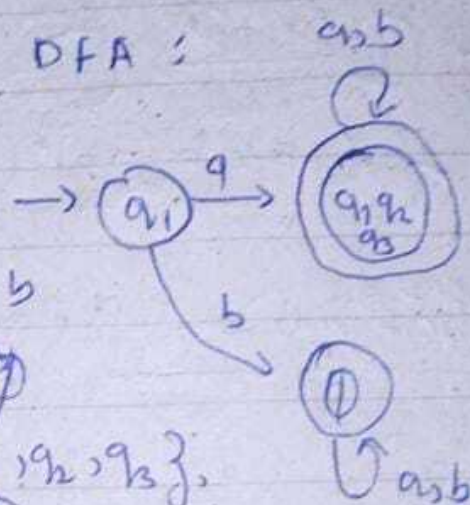 DFA :
a,b
→ q₁ a q₁ q₂
q₃
b b
φ
, q₂, q₃ }.
a,b